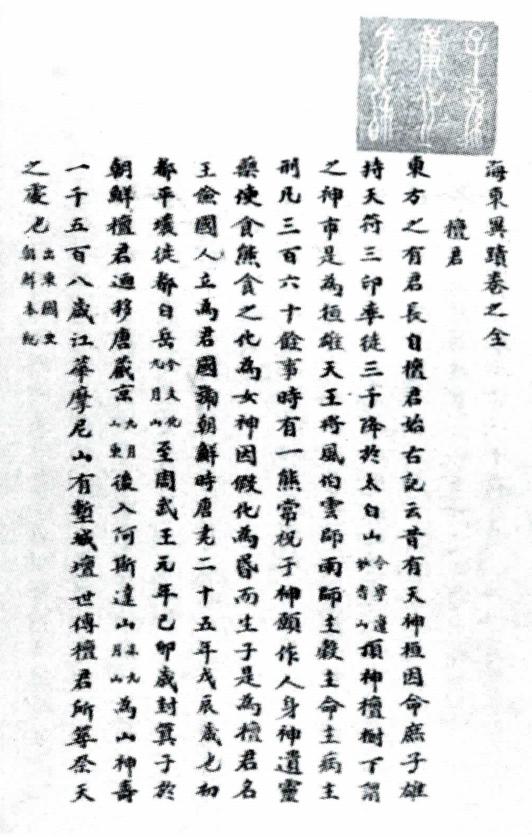 海東異蹟卷之全
檀君
東方之有君長自檀君始古記云昔有天神桓因命庶子雄
持天符三印率徒三千降於太白山今寧邊妙香山頂神檀樹下謂
之神市是為桓雄天王將風伯雲師雨師主穀主命主病主
刑凡三百六十餘事時有一熊常祝于神願作人身神遺靈
藥使食熊食之化為女神因假化為昏而生子是為檀君名
王儉國人立為君國號朝鮮時唐尭二十五年戊辰歲也初
都平壤徙都白岳今文化九月山至周武王元年己卯歲封箕子於
朝鮮檀君迺移唐藏京九月山東後入阿斯達山亦九月山為山神壽
一千五百八歲江華摩尼山有塹城壇世傳檀君所築祭天
之處也出東國史朝鮮本紀